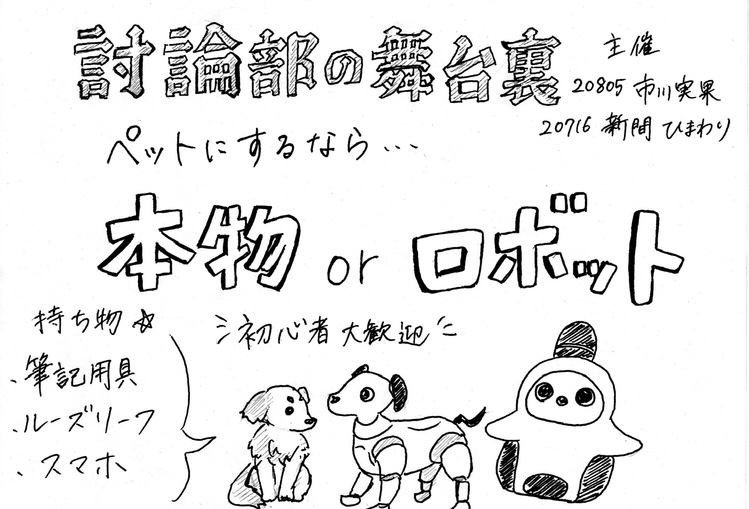 討論部の舞台裏
主催
20805 市川実果
20716 新間ひまわり
ペットにするなら…
本物 or ロボット
初心者大歓迎
持ち物☆
、筆記用具
、ルーズリーフ
、スマホ